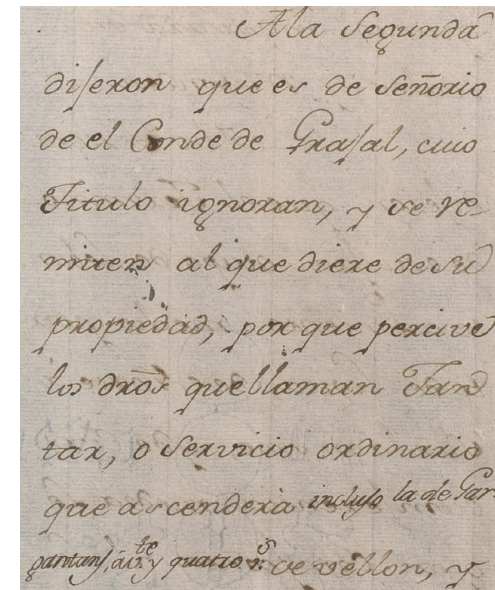 A la Segunda
dijeron que es de Señorio
de el Conde de Grajal, cuio
Titulo ignoran, y se re-
miten al que diere de su
propiedad, por que percive
los dros que llaman Jan
tar, o Servicio ordinario
que ascenderà incluso la de Gar
y quatro rs de vellon, y